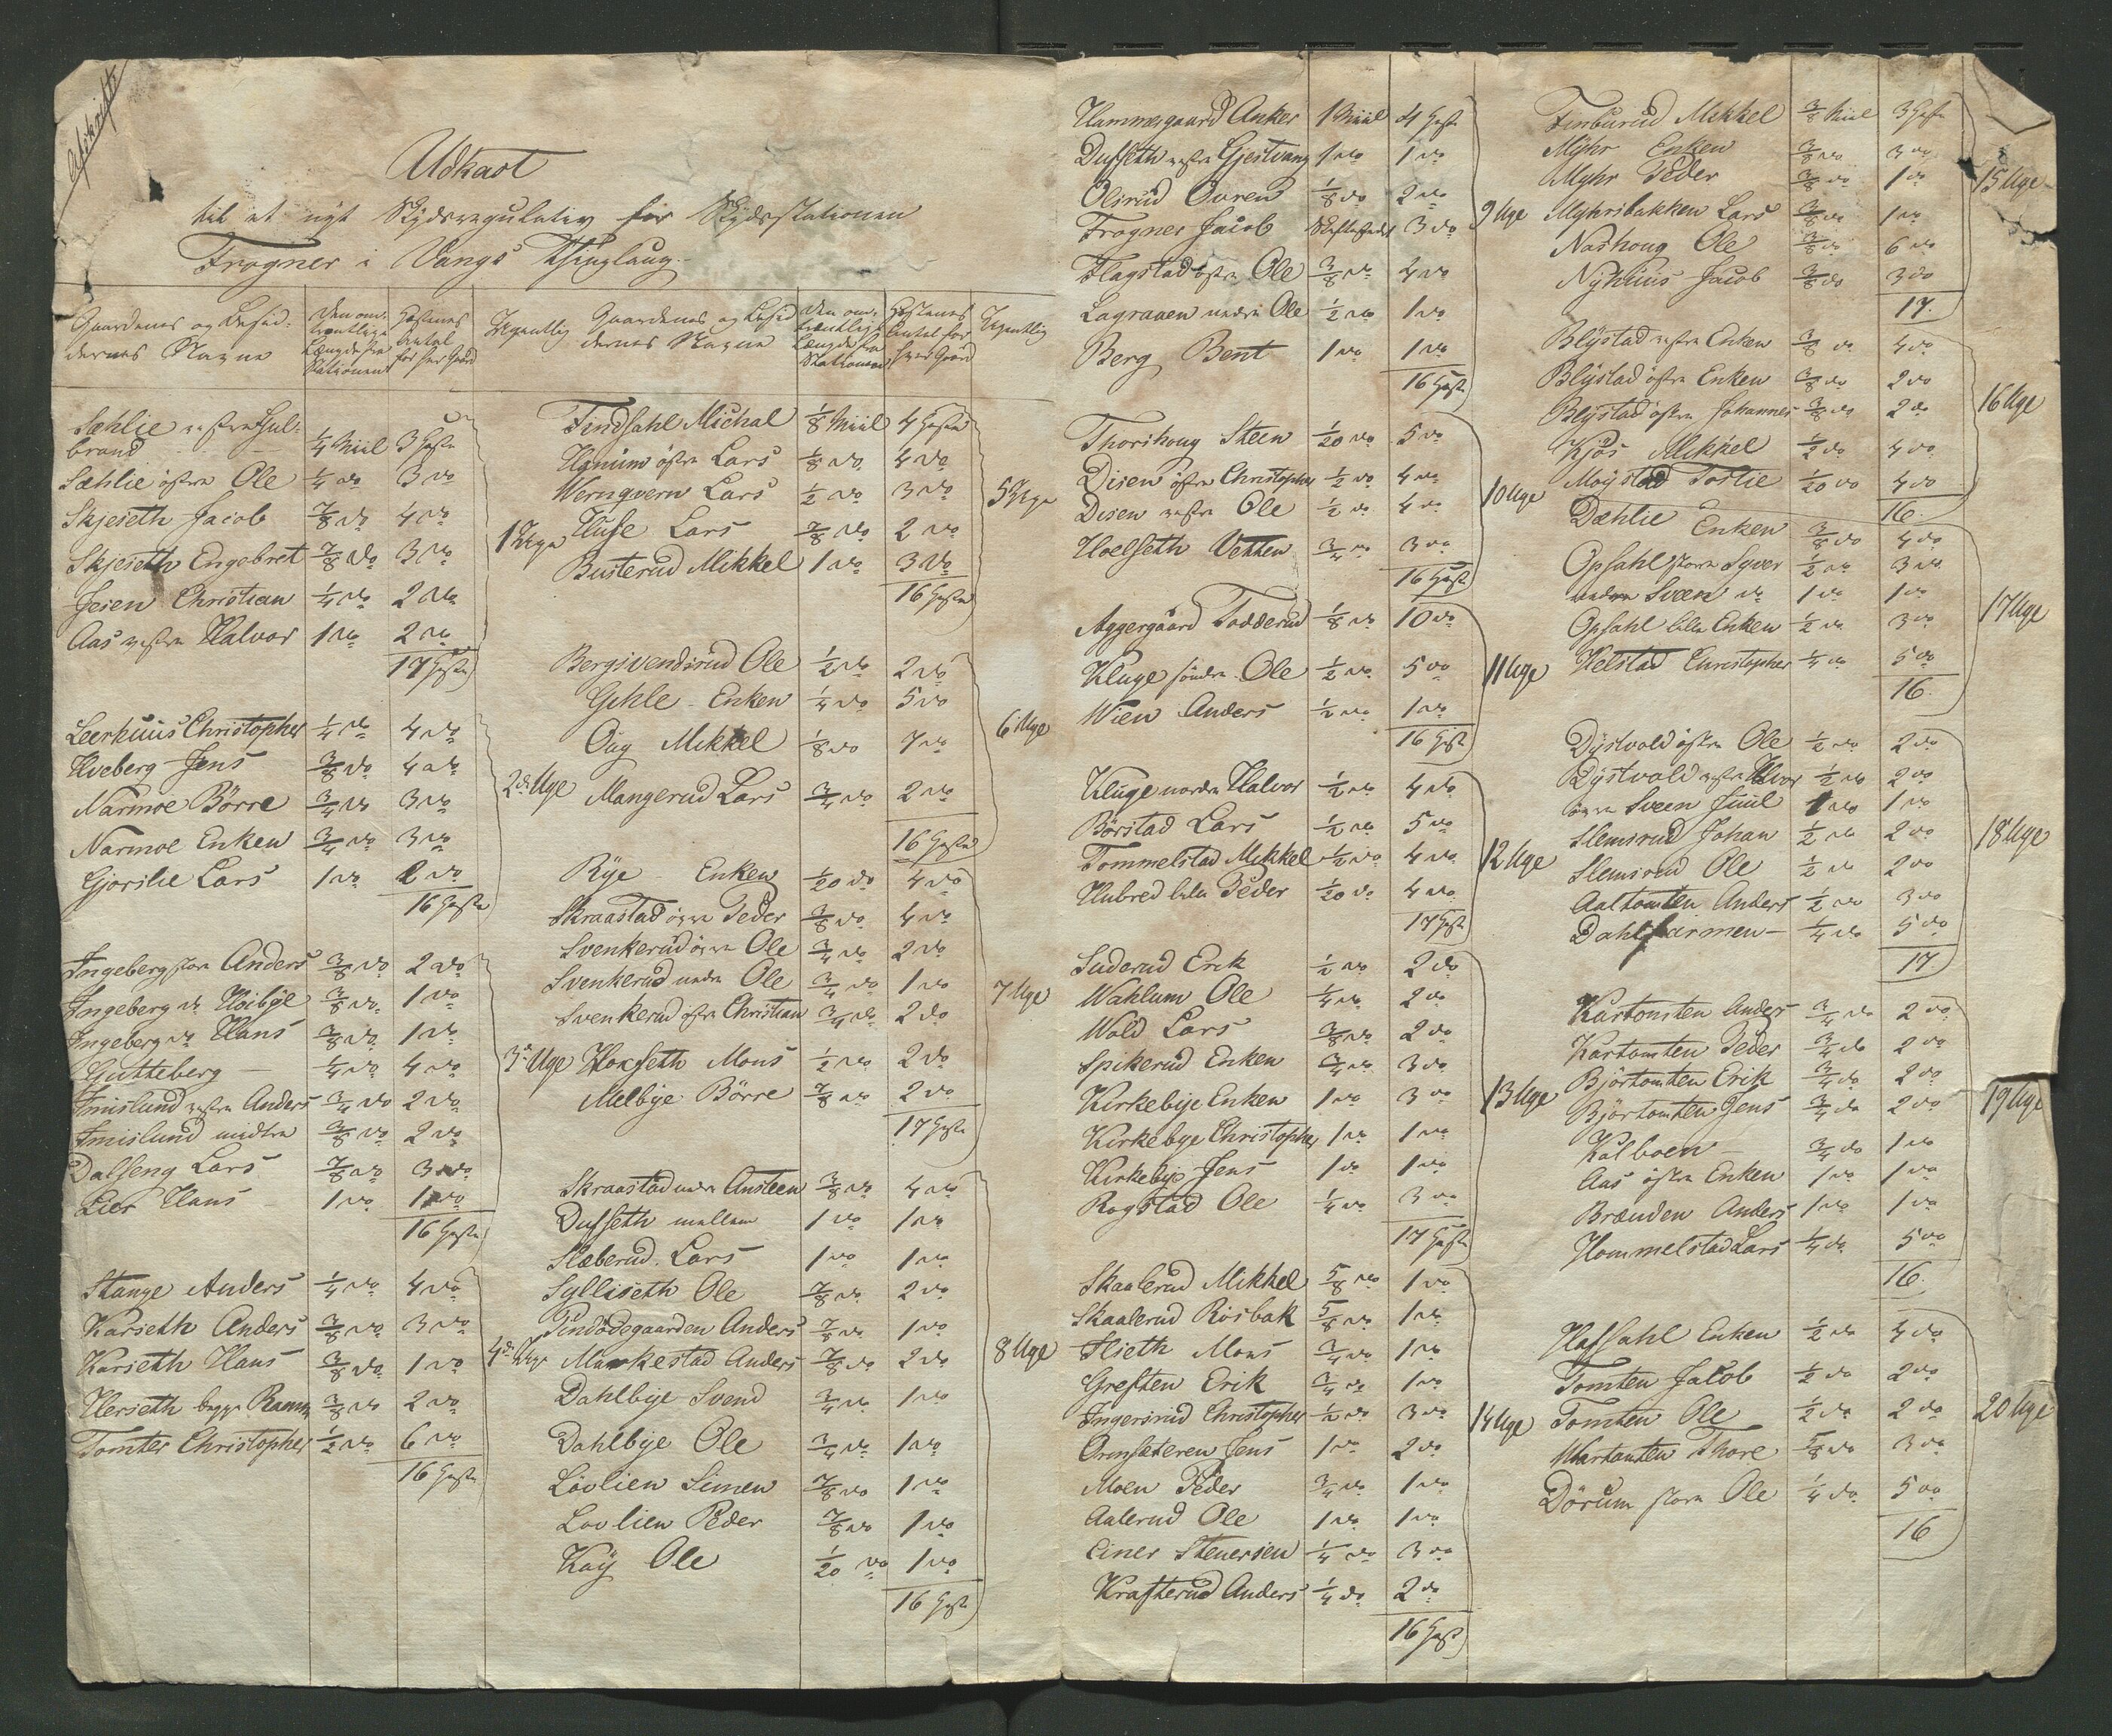 Afskrift
Udkast
til et nyt Skydsregulativ for Skydsstationen
Frogner i Vangs Thinglaug.
Gaardenes og Besid-
dernes Navne
Den om-
trentlige
Længde fra
Stationen
Hestenes
Antal
for hver Gaard
Ugentlig
Sæhlie vestre Gul-
brand ¼ Miil 3 Heste
Sæhlie östre Ole ¼ do 3 do
Skjeseth Jacob ⅞ do 4 do
Skjeseth Engebret ⅞ do 3 do
Jesen Christian ¼ do 2 do
Aas vestre Halvor 1 do 2 do
17 Heste
1 Uge
Leerhuus Christopher ¼ do 4 do
Hveberg Jens ⅜ do 4 do
Narmoe Börre ¾ do 3 do
Narmoe Enken ¾ do 3 do
Gjörslie Lars 1 do 2 do
16 Heste
2d Uge
Ingeberg store Anders ⅜ do 2 do
Ingeberg do Höibye ⅜ do 1 do
Ingeberg do Hans ⅜ do 1 do
Gutteberg — ¼ do 4 do
Imislund vestre Anders ¾ do 2 do
Imislund midtre ⅜ do 2 do
Dalseng Lars ⅞ do 3 do
Lier Hans 1 do 1 do
16 Heste
3d Uge
Stange Anders ¼ do 4 do
Karseth Anders ⅜ do 3 do
Karseth Hans ⅜ do 1 do
Herseth begge ⅜ do 2 do
Tomter Christopher ½ do 6 do
16 Heste
4de Uge
Gaardenes og Besid-
dernes Navne
Den om-
trentlige
Længde fra
Stationen
Hestenes
Antal for
hver Gaard
Ugentlig
Findsahl Michal ⅛ Miil 4 Heste
Hnüm östre Lars ⅛ do 4 do
Wernqvern Lars ½ do 3 do
Huse Lars ⅞ do 2 do
Busterud Mikkel 1 do 3 do
16 Heste
5 Uge
Bergsvendsrud Ole ½ do 2 do
Gehle - Enken ¼ do 5 do
Oüg Mikkel ⅛ do 7 do
Mangerud Lars ¾ do 2 do
16 Heste
6 Uge
Rye - Enken 1/20 do 4 do
Skraastad övre Peder ⅜ do 4 do
Svenkerud övre Ole ¾ do 2 do
Svenkerud nedre Ole ¾ do 1 do
Svenkerud östre Christian ¾ do 2 do
Hoxseth Mons ½ do 2 do
Melbye Börre ⅞ do 2 do
17 Heste
7 Uge
Skraastad nedre Ansteen ⅜ do 4 do
Dufseth mellem 1 do 1 do
Slæberud Lars 1 do 1 do
Sylliseth Ole ⅞ do 2 do
Pindödegaarden Anders ⅞ do 1 do
Markestad Anders ⅞ do 2 do
Dahlbye Svend ¾ do 1 do
Dahlbye Ole ¾ do 1 do
Lövlien Simen ⅞ do 1 do
Lövlien Peder ⅞ do 1 do
Kaÿ Ole 1/20 do 1 do
16 Heste
8 Uge
Hammersgaard Anker 1 Miil 4 Heste
Dufseth vestre Gjestvang 1 do 1 do
Olsrud Ouren ⅛ do 2 do
Frogner Jacob Skiftestedet 3 do
Flagstad östre Ole ⅜ do 4 do
Lagraaen nedre Ole ½ do 1 do
Berg Bent 1 do 1 do
16 Heste
9 Uge
Thorshoug Steen 1/20 do 5 do
Disen östre Christopher ½ do 4 do
Disen vestre Ole ½ do 4 do
Hoelseth Vetten ¾ do 3 do
16 Heste
10 Uge
Aggergaard Todderud ⅛ do 10 do
Kluge söndre Ole ½ do 5 do
Wien Anders ½ do 1 do
16 Heste
11 Uge
Kluge nordre Halvor ½ do 4 do
Börstad Lars ½ do 5 do
Tommelstad Mikkel ½ do 4 do
Hubred lille Peder 1/20 do 4 do
17 Heste
12 Uge
Suderud Erik ½ do 2 do
Wahlum Ole ¼ do 2 do
Wold Lars ⅜ do 2 do
Spikerud Enken ¾ do 3 do
Kirkebye Enken 1 do 3 do
Kirkebye Christopher 1 do 1 do
Kirkebye Jens 1 do 1 do
Rogstad Ole ¼ do 3 do
17 Heste
13 Uge
Skaalerud Mikkel ⅝ do 1 do
Skaalerud Rosbak ⅝ do 1 do
Flieth Mons ¾ do 1 do
Greften Erik ¾ do 1 do
Ingersrud Christopher ½ do 3 do
Ormsæteren Jens 1 do 2 do
Moen Peder ¾ do 1 do
Aalerud Ole 1 do 1 do
Einer Steuersen ¼ do 3 do
Krafterud Anders ¼ do 2 do
16 Heste
14 Uge
Finburud Mikkel ⅜ Miil 3 Heste
Myhr Enken ⅜ do 3 do
Myhr Peder ⅜ do 1 do
Myhrsbakken Lars ⅜ do 1 do
Nashoug Ole ⅜ do 6 do
Nyhuus Jacob ⅜ do 3 do
17.
15 Uge
Blystad vestre Enken ⅜ do 4 do
Blystad östre Enken ⅜ do 2 do
Blystad östre Johannes ⅜ do 2 do
Kjös Mikkel ½ do 4 do
Möystad Toslie 1/20 do 4 do
16.
16 Uge
Dæhlie Enken ⅜ do 4 do
Opsahl store Syver ½ do 3 do
nedre Sveen do 1 do 1 do
Opsahl lille Enken ½ do 3 do
Helstad Christopher ¼ do 5 do
16.
17 Uge
Dystvold östre Ole ½ do 2 do
Dystvold vestre Halvor ½ do 2 do
övre Sveen Juul 1 do 1 do
Slemsrud Johan ½ do 2 do
Slemsrud Ole ½ do 2 do
Aaltomten Anders ½ do 3 do
Dahlfarmen — ¼ do 5 do
17.
18 Uge
Kartomten Anders ¾ do 2 do
Kartomten Peder ¾ do 2 do
Björtomten Erik ¾ do 2 do
Björtomten Jens ¾ do 2 do
Kolboen — ¾ do 1 do
Aas östre Enken 1 do 1 do
Brænden Anders 1 do 1 do
Hommelstad Lars ¼ do 5 do
16.
19 Uge
Hafsahl Enken ½ do 4 do
Tomten Jacob ½ do 2 do
Tomten Ole ½ do 2 do
Thore ⅝ do 3 do
Dörum store Ole ¼ do 5 do
16
20 Uge